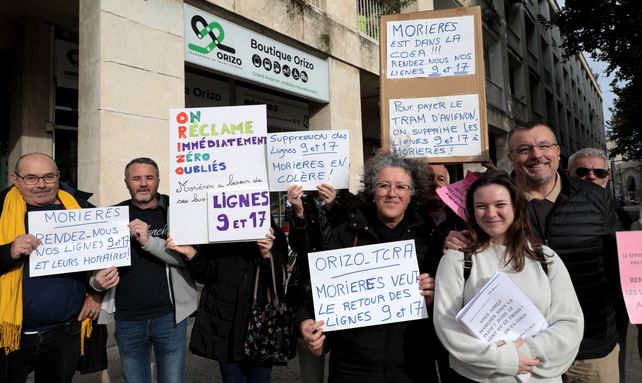 ORIZO
TRANSPORTS DU GRAND AVIGNON
Boutique Orizo
Grand Avignon, mobilités & vous
MORIERES
EST DANS LA
COGA !!!
RENDEZ-NOUS NOS
LIGNES 9 et 17
POUR PAYER LE
TRAM D'AVIGNON,
ON SUPPRIME LES
LIGNES 9 et 17 A
MORIERES !
ON
RÉCLAME
IMMÉDIATEMENT
ZÉRO
OUBLIÉS
Morières a besoin de
ses bus
LIGNES
9 ET 17
Suppression des
Lignes 9 et 17
MORIERES EN
COLÈRE !
MORIERES-
RENDEZ-NOUS
NOS LIGNES 9 et 17
ET LEURS HORAIRES !
ORIZO-TCRA
MORIERES VEUT
LE RETOUR DES
LIGNES 9 et 17